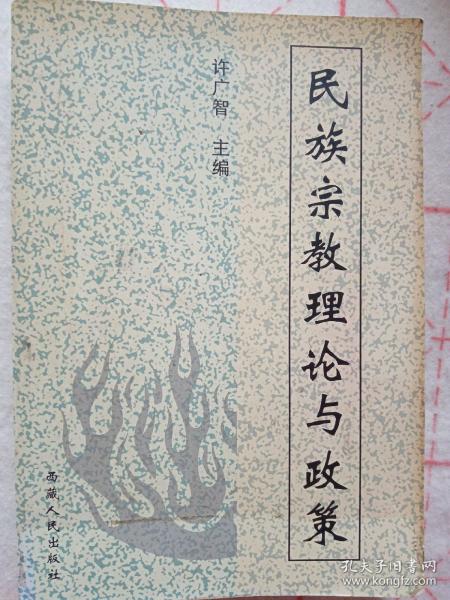 民族宗教理论与政策
许广智 主编
西藏人民出版社
孔夫子旧书网
www.kongfz.com